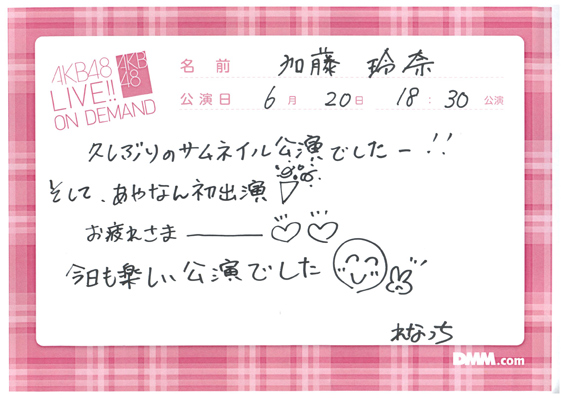 AKB48
LIVE!!
ON DEMAND
AKB
48
名前 加藤 玲奈
公演日 6月 20日 18:30 公演
久しぶりのサムネイル公演でしたー!!
そして、あやなん初出演
お疲れさま———♡♡
今日も楽しい公演でした
れなっち
DMM.com